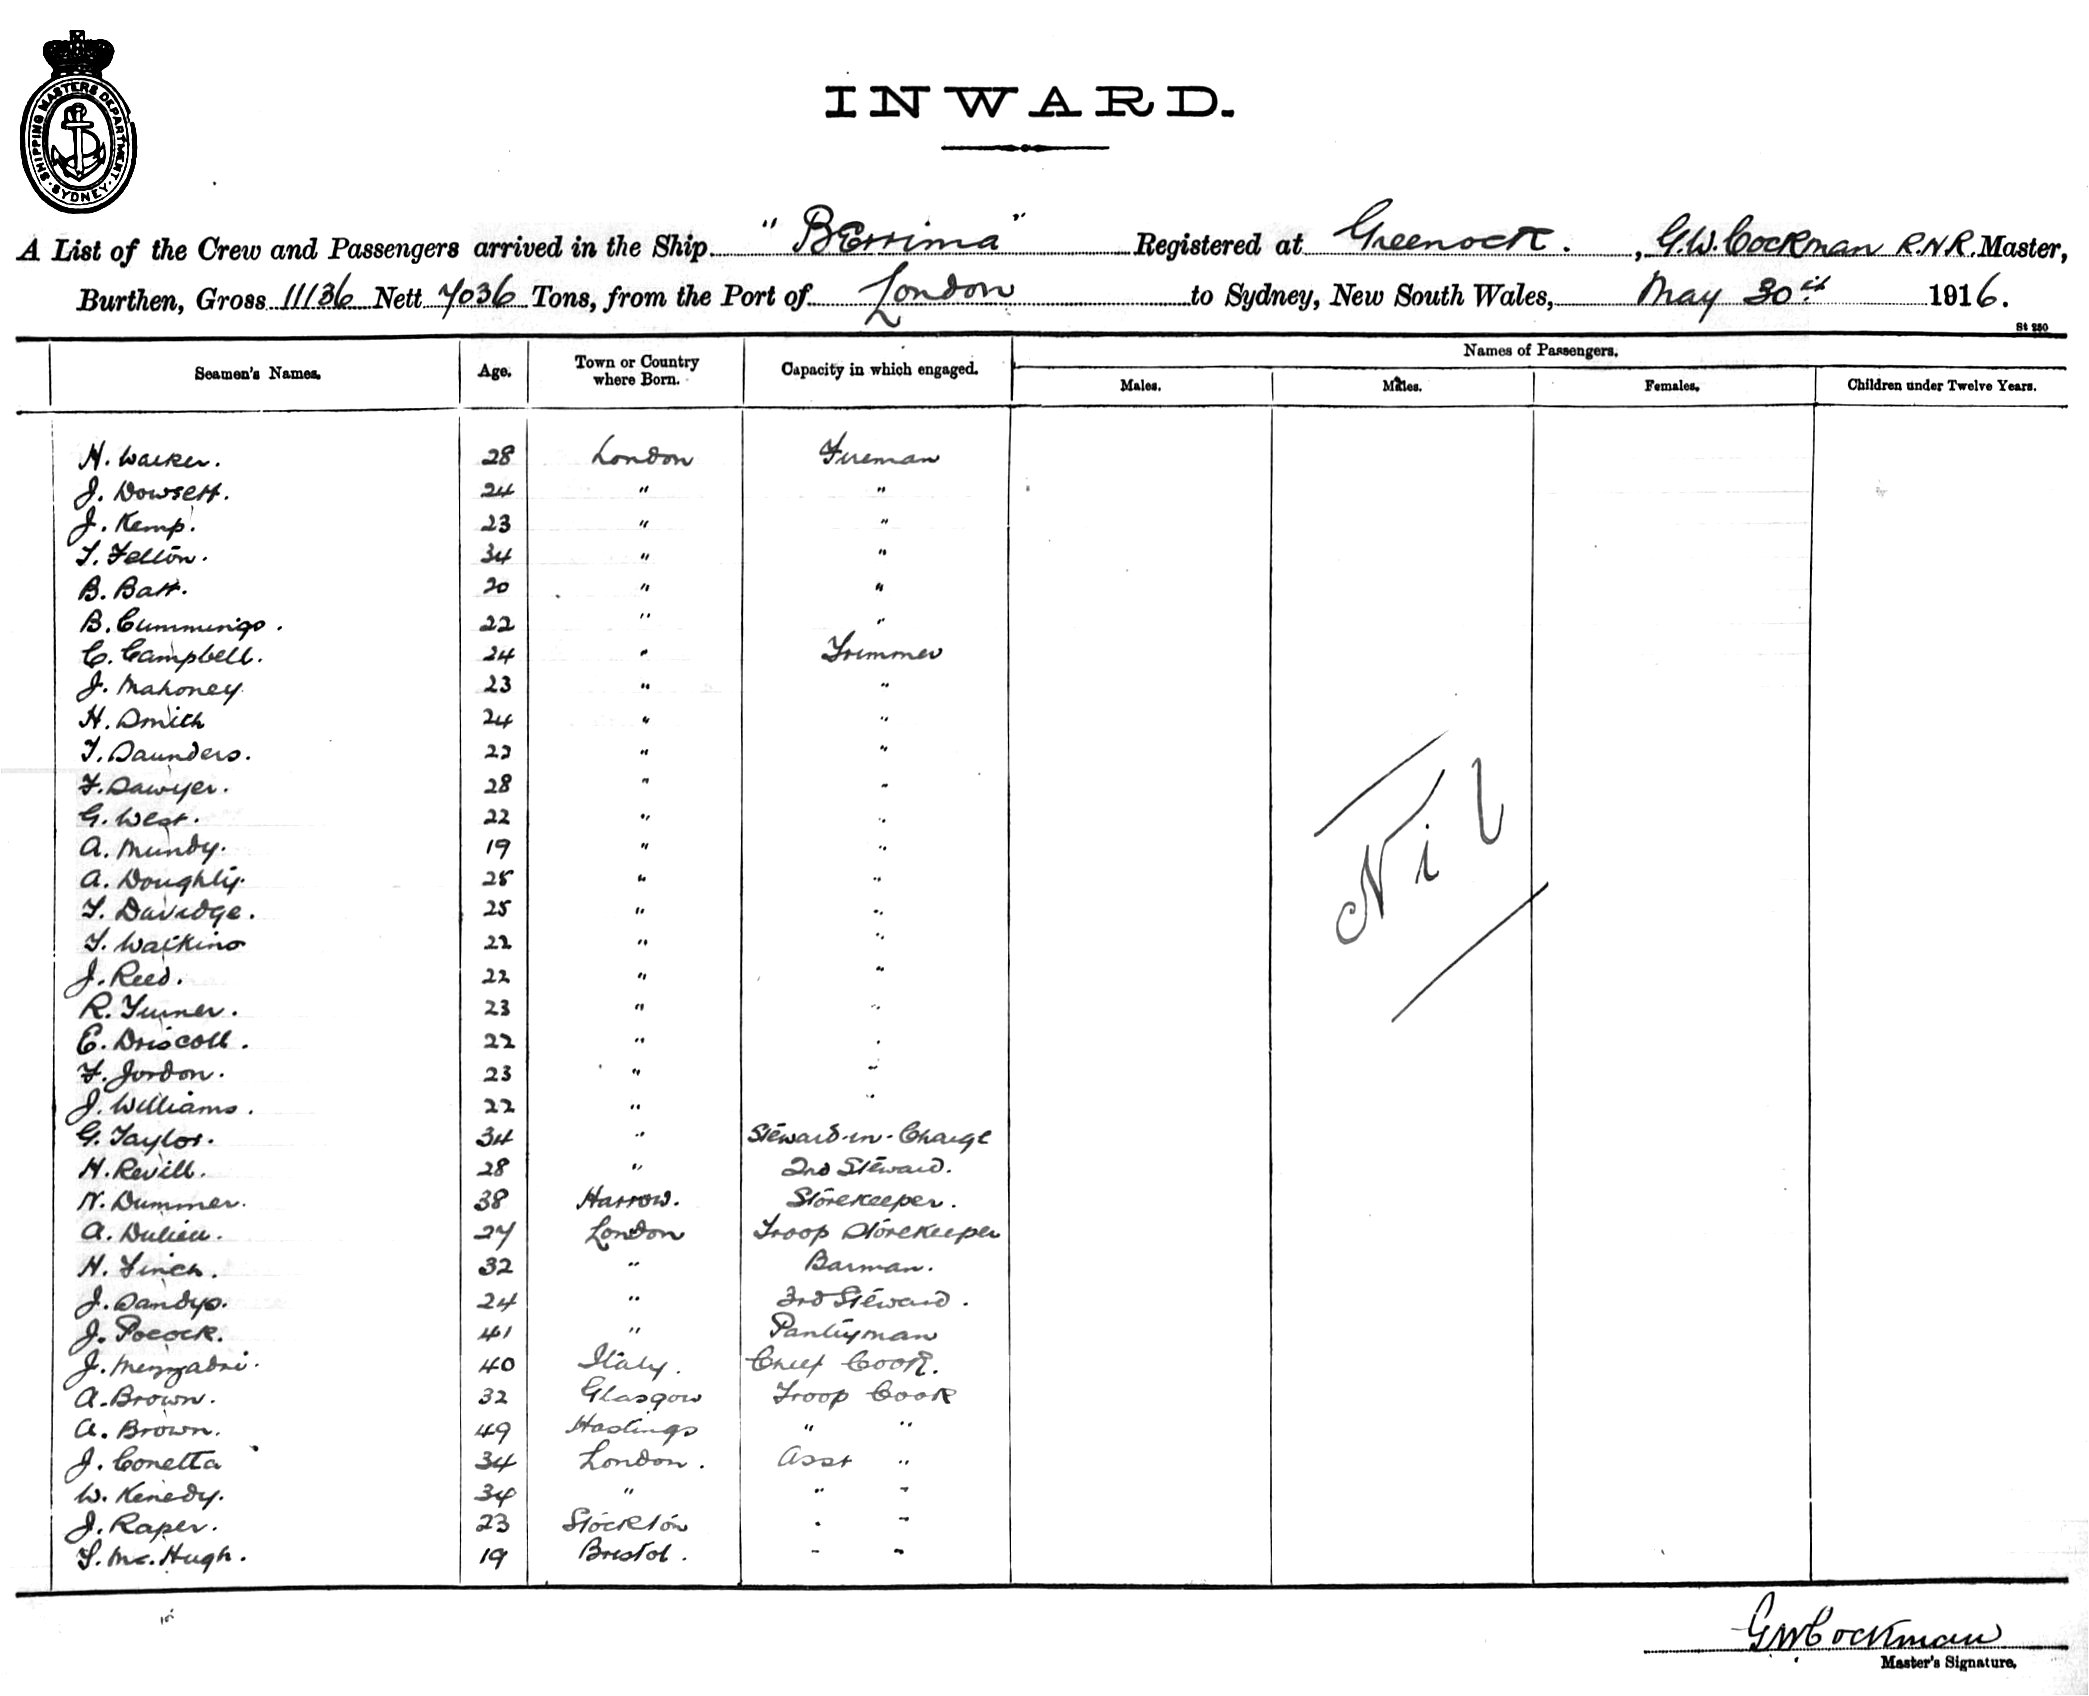 SHIPPING MASTERS DEPARTMENT · SYDNEY ·
INWARD.
A List of the Crew and Passengers arrived in the Ship "Berrima" Registered at Greenock. , G.W. Cockman R.N.R. Master,
Burthen, Gross 11136 Nett 7036 Tons, from the Port of London to Sydney, New South Wales, May 30th 1916.
St 280
Names of Passengers.
Seamen's Names. Age. Town or Country where Born. Capacity in which engaged. Males. Males. Females. Children under Twelve Years.
H. Walker. 28 London Fireman
J. Dowsett. 24 " "
J. Kemp. 23 " "
T. Felton. 34 " "
B. Batt. 20 " "
B. Cummings. 22 " "
C. Campbell. 24 " Trimmer
J. Mahoney 23 " "
H. Smith 24 " "
T. Saunders. 22 " "
F. Sawyer. 28 " "
G. West. 22 " "
A. Mundy. 19 " "
A. Doughty. 25 " "
T. Davidge. 25 " "
T. Watkins 22 " "
J. Reed. 22 " "
R. Turner. 23 " "
E. Driscoll. 22 " "
F. Jordon. 23 " "
J. Williams. 22 " "
G. Taylor. 34 " Steward-in-Charge
H. Revill. 28 " 2nd Steward.
N. Dummer. 38 Harrow. Storekeeper.
A. Dulieu. 27 London Troop Storekeeper
H. Finch. 32 " Barman.
J. Sandys. 24 " 3rd Steward.
J. Pocock. 41 " Pantryman
J. Mezzadri. 40 Italy. Chief Cook.
A. Brown. 32 Glasgow Troop Cook
A. Brown. 49 Hastings " "
J. Conetta 34 London. Asst "
W. Kenedy. 34 " " "
J. Raper. 23 Stockton " "
T. McHugh. 19 Bristol. " "
Nil
GWCockman
Master's Signature.